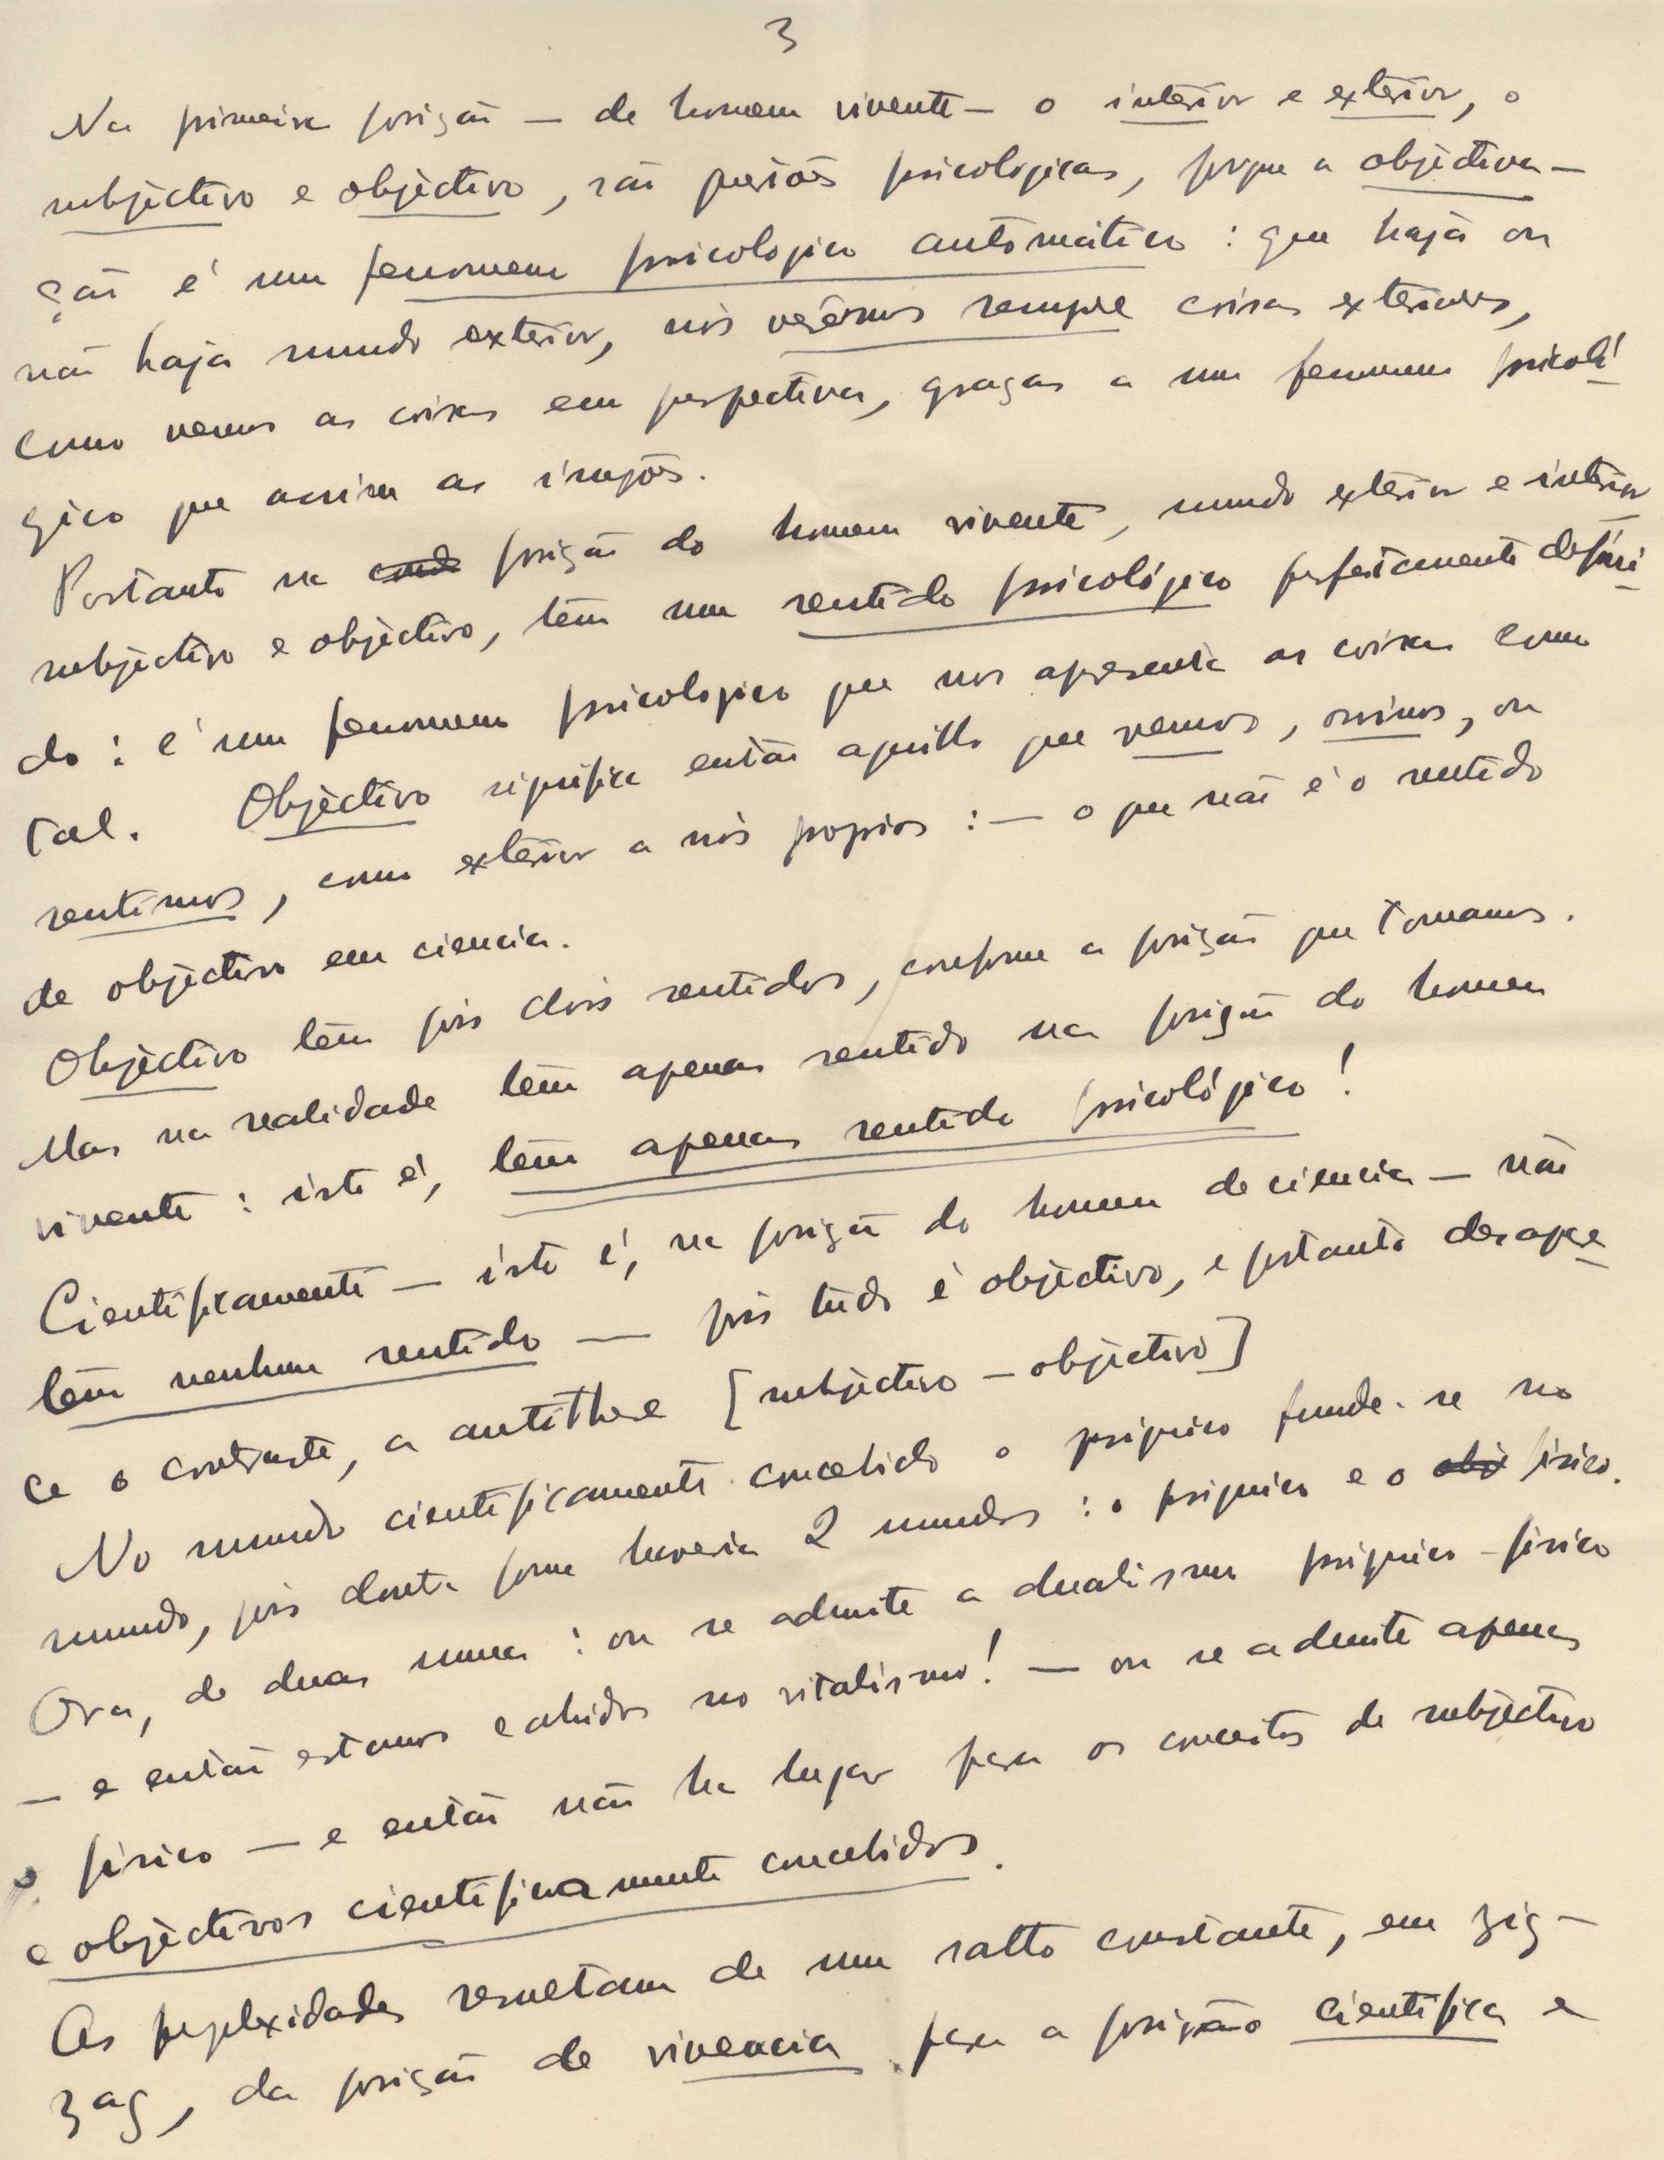 3
Na primeira posição — de homem vivente — o interior e exterior, o
subjectivo e objectivo, são psicologicas, porque a objectiva-
ção é um fenomeno psicologico automático: quer haja ou
não haja mundo exterior, nós veremos sempre coisas exteriores,
como vemos as coisas em perspectiva, graças a um fenomeno psicoló-
gico que assim as
Portanto na posição do homem vivente, mundo exterior e interior
subjectivo e objectivo, têm um sentido psicológico perfeitamente defini-
do: é um fenomeno psicologico que nos apresenta as coisas como
tal. Objectivo significa então aquillo que vemos, ouvimos, ou
sentimos, como exterior a nós proprios: — o que não é o sentido
de objectivo em ciencia.
Objectivo têm pois dois sentidos, conforme a posição que tomamos.
Mas na realidade têm apenas sentido na posição do homem
vivente: isto é, têm apenas sentido psicológico!
Cientificamente — isto é, na posição do homem de ciencia — não
têm nenhum sentido — pois tudo é objectivo, e portanto desapare-
ce o contraste, a antithese [subjectivo — objectivo]
No mundo cientificamente concebido o psiquico funde-se no
mundo, pois doutra forma haveria 2 mundos: o psiquico e o fisico.
Ora, de duas uma: ou se admite a dualismo psiquico-fisico
— e então estamos cahidos no vitalismo! — ou se admite apenas
o fisico — e então não ha lugar para os conceitos de subjectivo
e objectivos cientificamente concebidos.
As perplexidades resultam de um salto constante, em zig-
zag, da posição de vivencia para a posição cientifica e